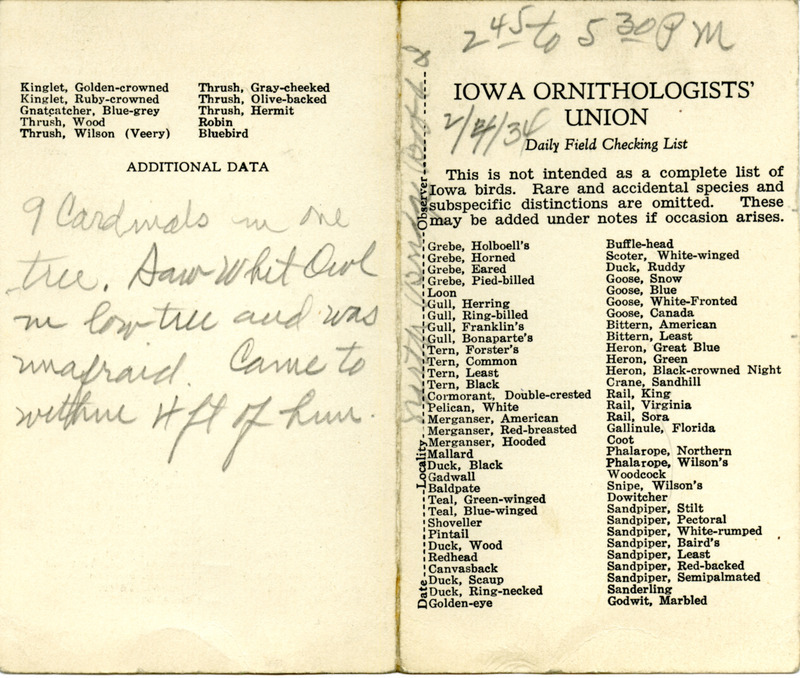 Kinglet, Golden-crowned
Kinglet, Ruby-crowned
Gnatcatcher, Blue-grey
Thrush, Wood
Thrush, Wilson (Veery)
Thrush, Gray-cheeked
Thrush, Olive-backed
Thrush, Hermit
Robin
Bluebird
ADDITIONAL DATA
9 Cardinals in one
tree. Saw Whet Owl
in low tree and was
unafraid. Came to
within 4 ft of him.
2 45 to 5 30 PM
IOWA ORNITHOLOGISTS'
UNION
2/4/34
Daily Field Checking List
This is not intended as a complete list of
Iowa birds. Rare and accidental species and
subspecific distinctions are omitted. These
may be added under notes if occasion arises.
Date Locality Observer
Grebe, Holboell's
Grebe, Horned
Grebe, Eared
Grebe, Pied-billed
Loon
Gull, Herring
Gull, Ring-billed
Gull, Franklin's
Gull, Bonaparte's
Tern, Forster's
Tern, Common
Tern, Least
Tern, Black
Cormorant, Double-crested
Pelican, White
Merganser, American
Merganser, Red-breasted
Merganser, Hooded
Mallard
Duck, Black
Gadwall
Baldpate
Teal, Green-winged
Teal, Blue-winged
Shoveller
Pintail
Duck, Wood
Redhead
Canvasback
Duck, Scaup
Duck, Ring-necked
Golden-eye
Buffle-head
Scoter, White-winged
Duck, Ruddy
Goose, Snow
Goose, Blue
Goose, White-Fronted
Goose, Canada
Bittern, American
Bittern, Least
Heron, Great Blue
Heron, Green
Heron, Black-crowned Night
Crane, Sandhill
Rail, King
Rail, Virginia
Rail, Sora
Gallinule, Florida
Coot
Phalarope, Northern
Phalarope, Wilson's
Woodcock
Snipe, Wilson's
Dowitcher
Sandpiper, Stilt
Sandpiper, Pectoral
Sandpiper, White-rumped
Sandpiper, Baird's
Sandpiper, Least
Sandpiper, Red-backed
Sandpiper, Semipalmated
Sanderling
Godwit, Marbled